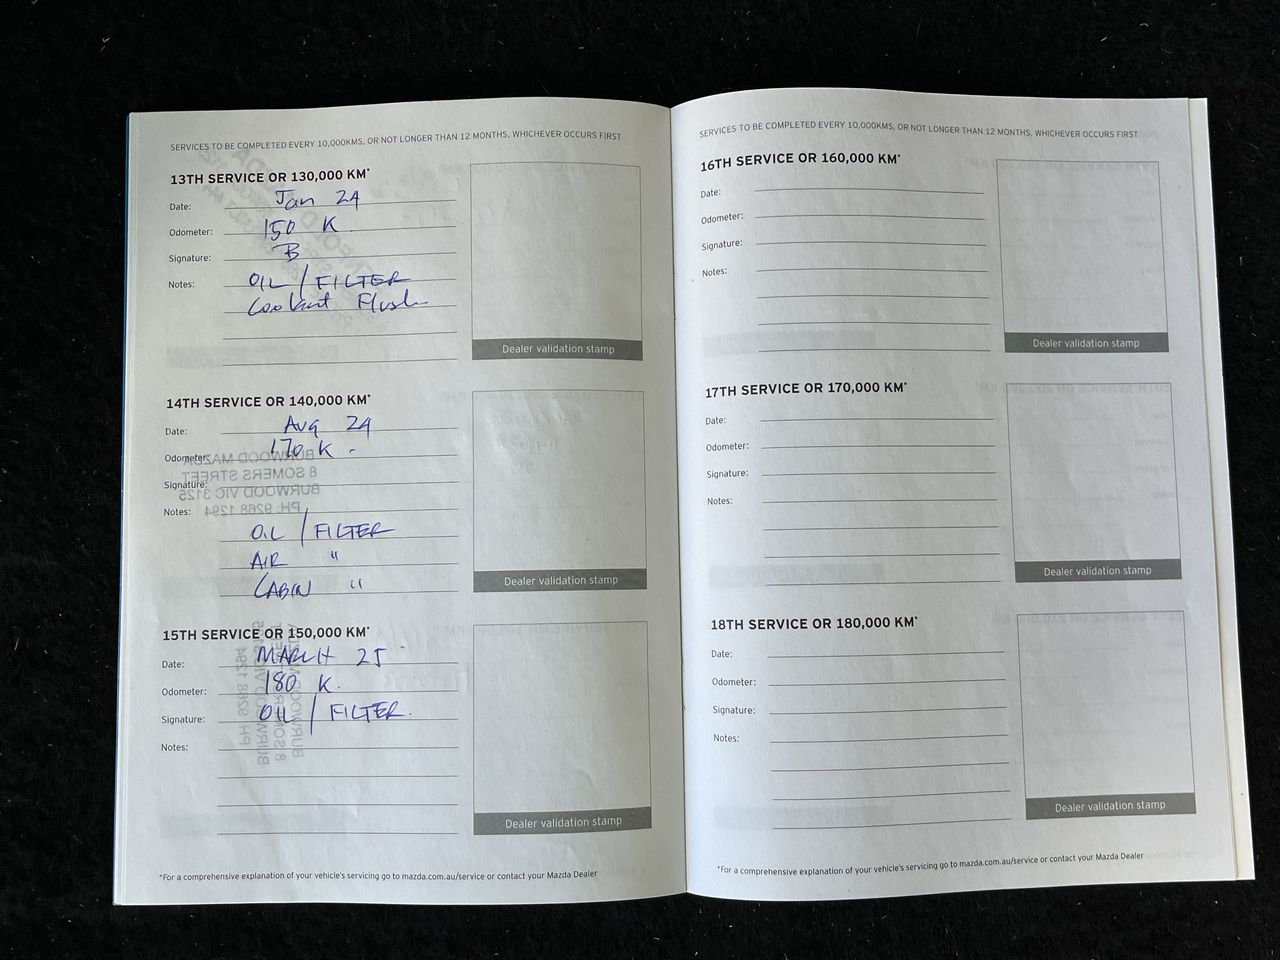 SERVICES TO BE COMPLETED EVERY 10,000KMS, OR NOT LONGER THAN 12 MONTHS, WHICHEVER OCCURS FIRST
13TH SERVICE OR 130,000 KM*
Date: Jan 24
Odometer: 150 K
Signature: B
Notes: OIL / FILTER
Coolant Flush
Dealer validation stamp
14TH SERVICE OR 140,000 KM*
Date: Aug 24
Odometer: 170 K -
Signature:
Notes:
OIL / FILTER
AIR "
CABIN "
Dealer validation stamp
15TH SERVICE OR 150,000 KM*
Date: MARCH 25
Odometer: 180 K.
Signature: OIL / FILTER.
Notes:
Dealer validation stamp
*For a comprehensive explanation of your vehicle's servicing go to mazda.com.au/service or contact your Mazda Dealer
SERVICES TO BE COMPLETED EVERY 10,000KMS, OR NOT LONGER THAN 12 MONTHS, WHICHEVER OCCURS FIRST
16TH SERVICE OR 160,000 KM*
Date:
Odometer:
Signature:
Notes:
Dealer validation stamp
17TH SERVICE OR 170,000 KM*
Date:
Odometer:
Signature:
Notes:
Dealer validation stamp
18TH SERVICE OR 180,000 KM*
Date:
Odometer:
Signature:
Notes:
Dealer validation stamp
*For a comprehensive explanation of your vehicle's servicing go to mazda.com.au/service or contact your Mazda Dealer
BURWOOD MAZDA
8 SOMERS STREET
BURWOOD VIC 3125
PH: 9268 1294
BURWOOD MAZDA
8 SOMERS STREET
BURWOOD VIC 3125
PH: 9268 1294